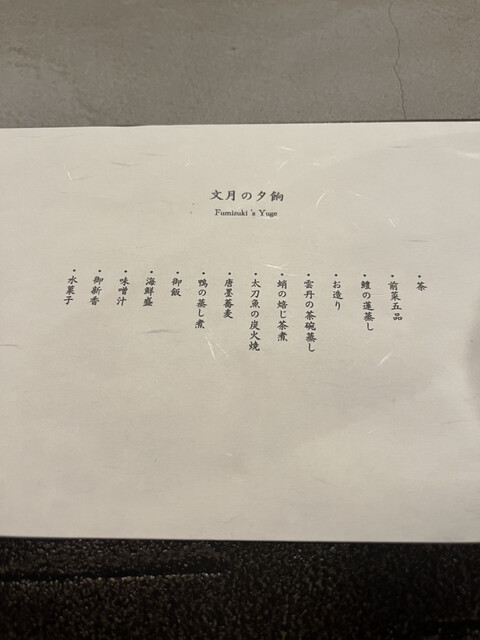 文月の夕餉
Fumizuki's Yuge
・茶
・前菜五品
・鱧の蓮蒸し
・お造り
・雲丹の茶碗蒸し
・蛸の焙じ茶煮
・太刀魚の炭火焼
・唐墨蕎麦
・鴨の蒸し煮
・御飯
・海鮮盛
・味噌汁
・御新香
・水菓子